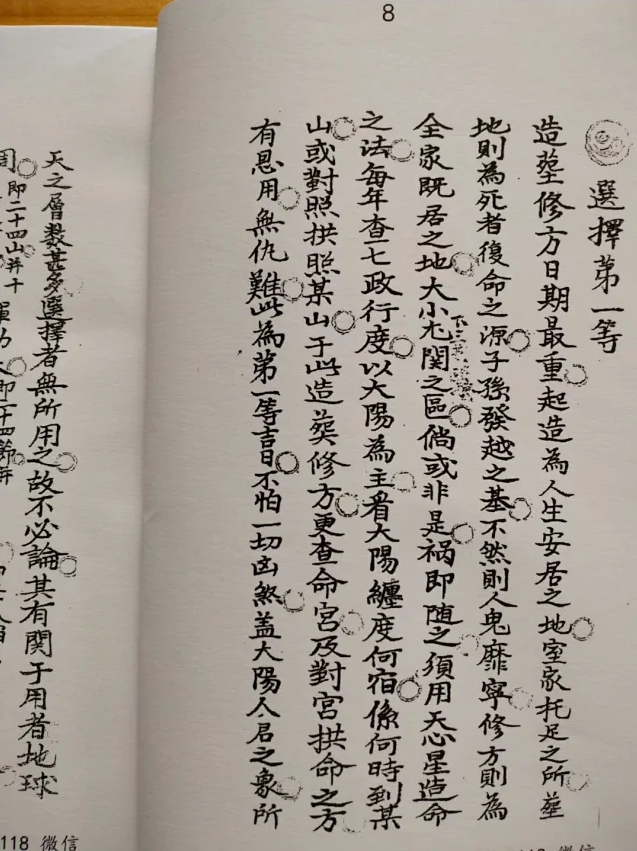 8
選擇第一等
造塟修方日期最重起造為人生安居之地室家托足之所塟
地則為死者復命之源子孫發越之基不然則人鬼靡寧修方則為
全家既居之地大小尤関之區倘或非是禍即随之須用天心星造命
之法每年查七政行度以大陽為主看大陽纏度何宿係何時到某
山或對照拱照某山于此造葬修方更查命宮及對宮拱命之方
有恩用無仇難此為第一等吉日不怕一切凶煞盖大陽人君之象所
天之層数甚多選擇者無所用之故不必論其有関于用者地球
周即二十四山并十
118 微信